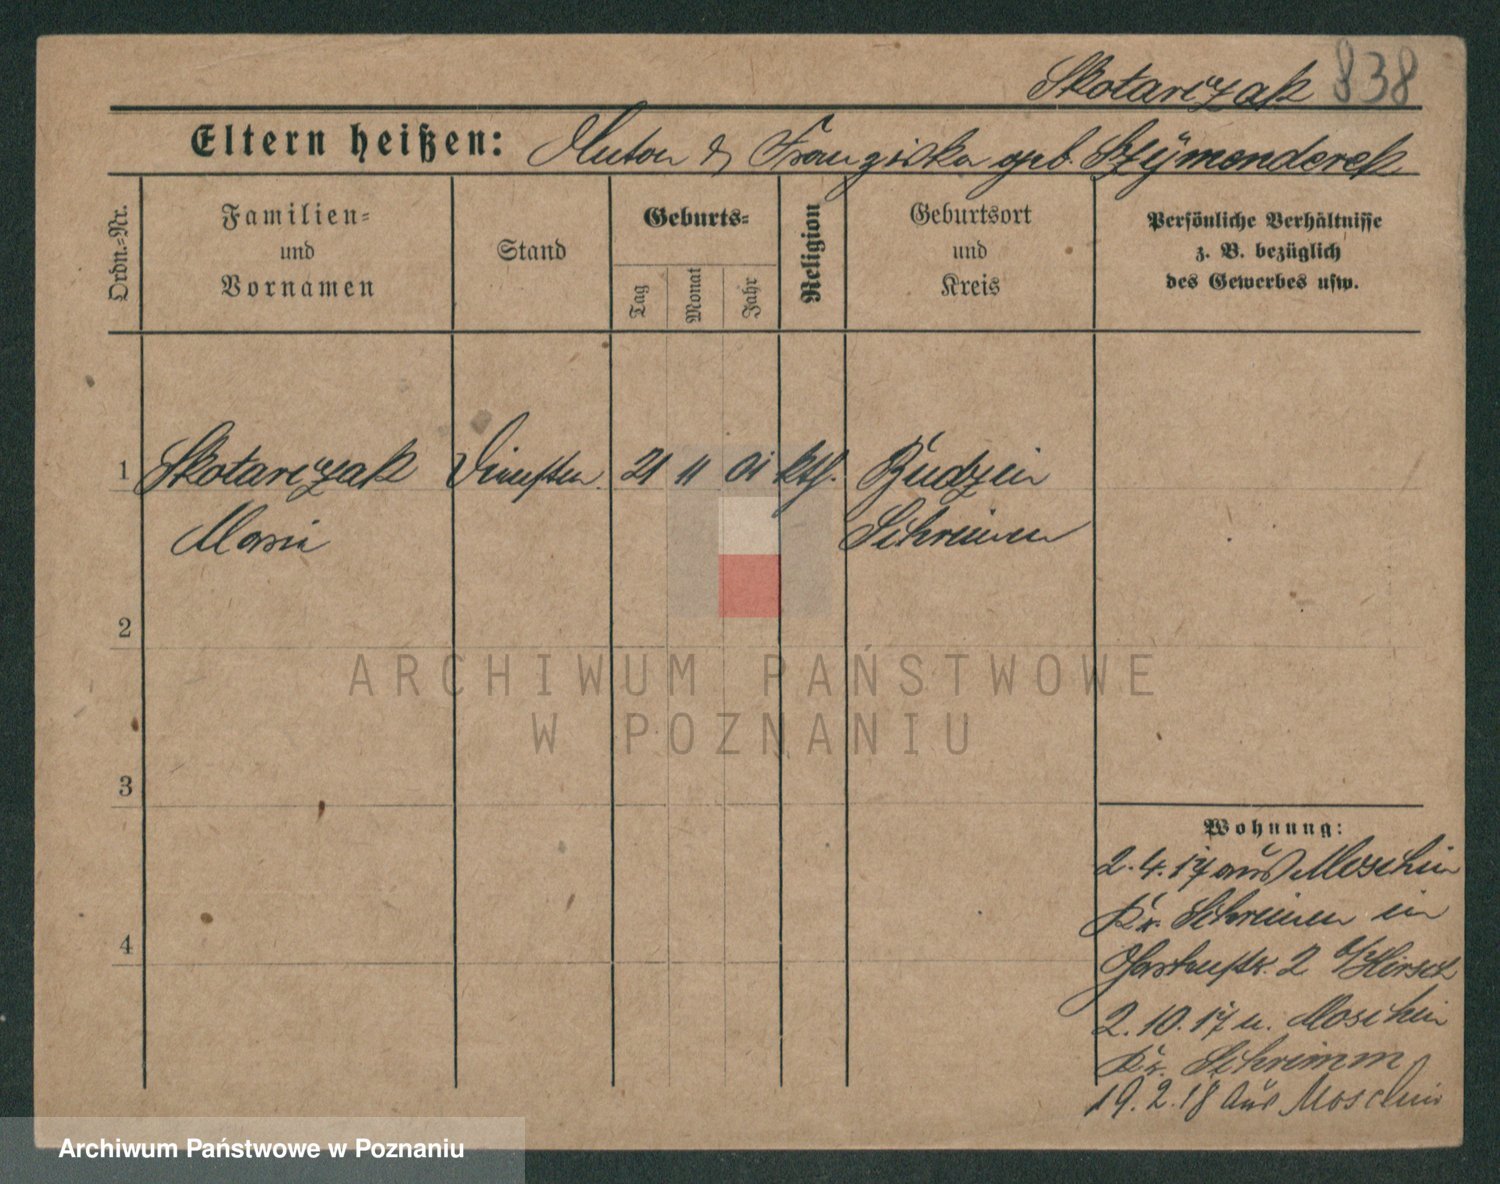 Skotarczak 838
Eltern heißen: Anton & Franziska geb. Szymenderek
Ordn.=Nr.
Familien=
und
Vornamen
Stand
Geburts=
Tag
Monat
Jahr
Religion
Geburtsort
und
Kreis
Persönliche Verhältnisse
z. B. bezüglich
des Gewerbes usw.
1 Skotarczak 21 11 01 kth. Budzin
Maria Schrimm
2
3
4
Wohnung:
2.4.17 aus Moschin
Kr. Schrimm in
Gartenstr. 2 b/Hirsch
2.10.17 n. Moschin
Kr. Schrimm
19.2.18 aus Moschin
ARCHIWUM PAŃSTWOWE
W POZNANIU
Archiwum Państwowe w Poznaniu